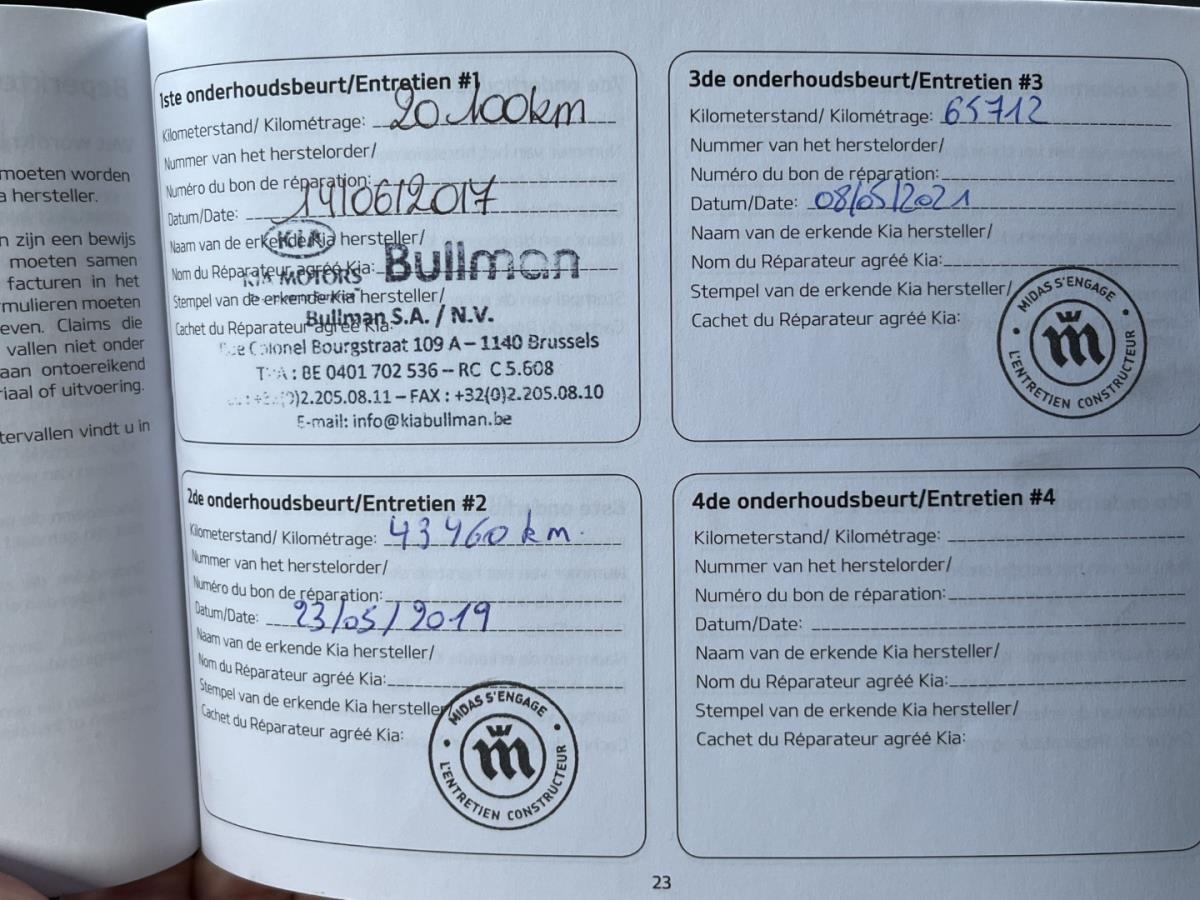 moeten worden
a hersteller.
n zijn een bewijs
moeten samen
facturen in het
rmulieren moeten
even. Claims die
vallen niet onder
aan ontoereikend
riaal of uitvoering.
tervallen vindt u in
1ste onderhoudsbeurt/Entretien #1
Kilometerstand/ Kilométrage: 20.100km
Nummer van het herstelorder/
Numéro du bon de réparation:
Datum/Date: 14/06/2017
Naam van de erkende Kia hersteller/
Nom du Réparateur agréé Kia:
KIA
KIA MOTORS
Bullman
Stempel van de erkende Kia hersteller/
Bullman S.A. / N.V.
Cachet du Réparateur agréé Kia:
Colonel Bourgstraat 109 A – 1140 Brussels
TVA : BE 0401 702 536 – RC C 5.608
2.205.08.11 – FAX : +32(0)2.205.08.10
E-mail: info@kiabullman.be
2de onderhoudsbeurt/Entretien #2
Kilometerstand/ Kilométrage: 43460 km.
Nummer van het herstelorder/
Numéro du bon de réparation:
Datum/Date: 23/05/2019
Naam van de erkende Kia hersteller/
Nom du Réparateur agréé Kia:
Stempel van de erkende Kia hersteller
Cachet du Réparateur agréé Kia:
MIDAS S'ENGAGE
m
L'ENTRETIEN CONSTRUCTEUR
3de onderhoudsbeurt/Entretien #3
Kilometerstand/ Kilométrage: 65712
Nummer van het herstelorder/
Numéro du bon de réparation:
Datum/Date: 08/05/2021
Naam van de erkende Kia hersteller/
Nom du Réparateur agréé Kia:
Stempel van de erkende Kia hersteller/
Cachet du Réparateur agréé Kia:
MIDAS S'ENGAGE
m
L'ENTRETIEN CONSTRUCTEUR
4de onderhoudsbeurt/Entretien #4
Kilometerstand/ Kilométrage:
Nummer van het herstelorder/
Numéro du bon de réparation:
Datum/Date:
Naam van de erkende Kia hersteller/
Nom du Réparateur agréé Kia:
Stempel van de erkende Kia hersteller/
Cachet du Réparateur agréé Kia:
23